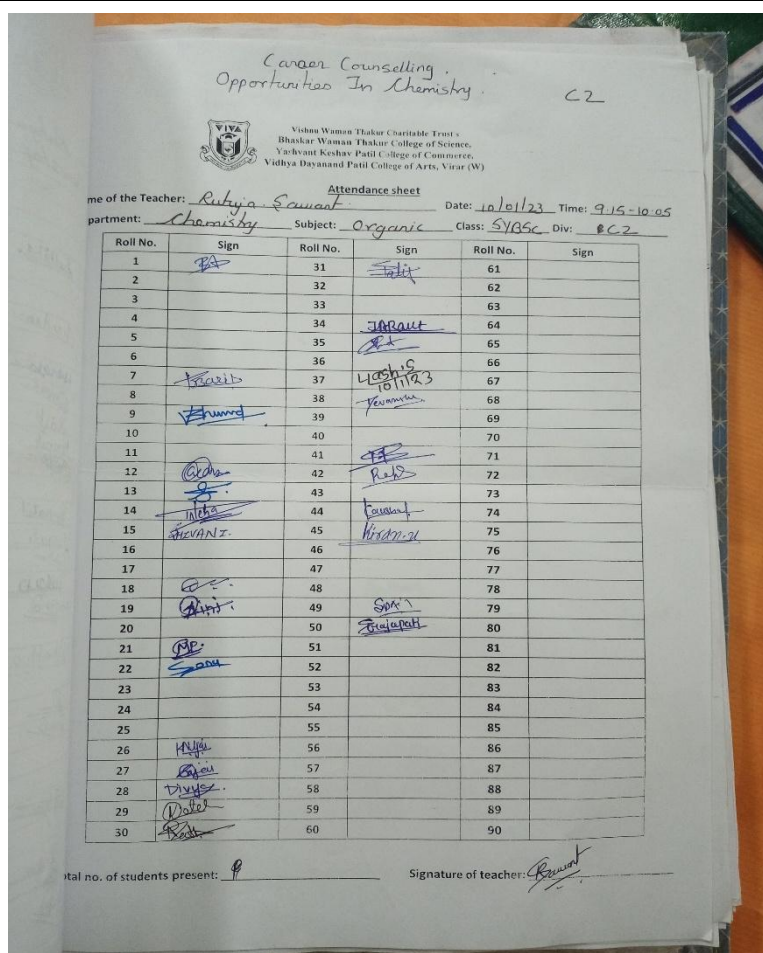 Career Counselling.
Opportunities In Chemistry.
C2
VIVA
Vishnu Waman Thakur Charitable Trust's
Bhaskar Waman Thakur College of Science,
Yashvant Keshav Patil College of Commerce,
Vidhya Dayanand Patil College of Arts, Virar (W)
Attendance sheet
me of the Teacher: Rutuja Sawant Date: 10/01/23 Time: 9:15-10:05
partment: Chemistry Subject: Organic Class: SYBSc Div: C2
Roll No. Sign Roll No. Sign Roll No. Sign
1 31 61
2 32 62
3 33 63
4 34 JARaut 64
5 35 65
6 36 66
7 37 Yash.S 10/1/23 67
8 38 68
9 39 69
10 40 70
11 41 71
12 42 72
13 43 73
14 44 74
15 SHIVANI. 45 Kiran-u 75
16 46 76
17 47 77
18 48 78
19 49 79
20 50 Prajapati 80
21 MP. 51 81
22 Sonu 52 82
23 53 83
24 54 84
25 55 85
26 56 86
27 57 87
28 Divya. 58 88
29 Patel 59 89
30 60 90
otal no. of students present: Signature of teacher: Sawant